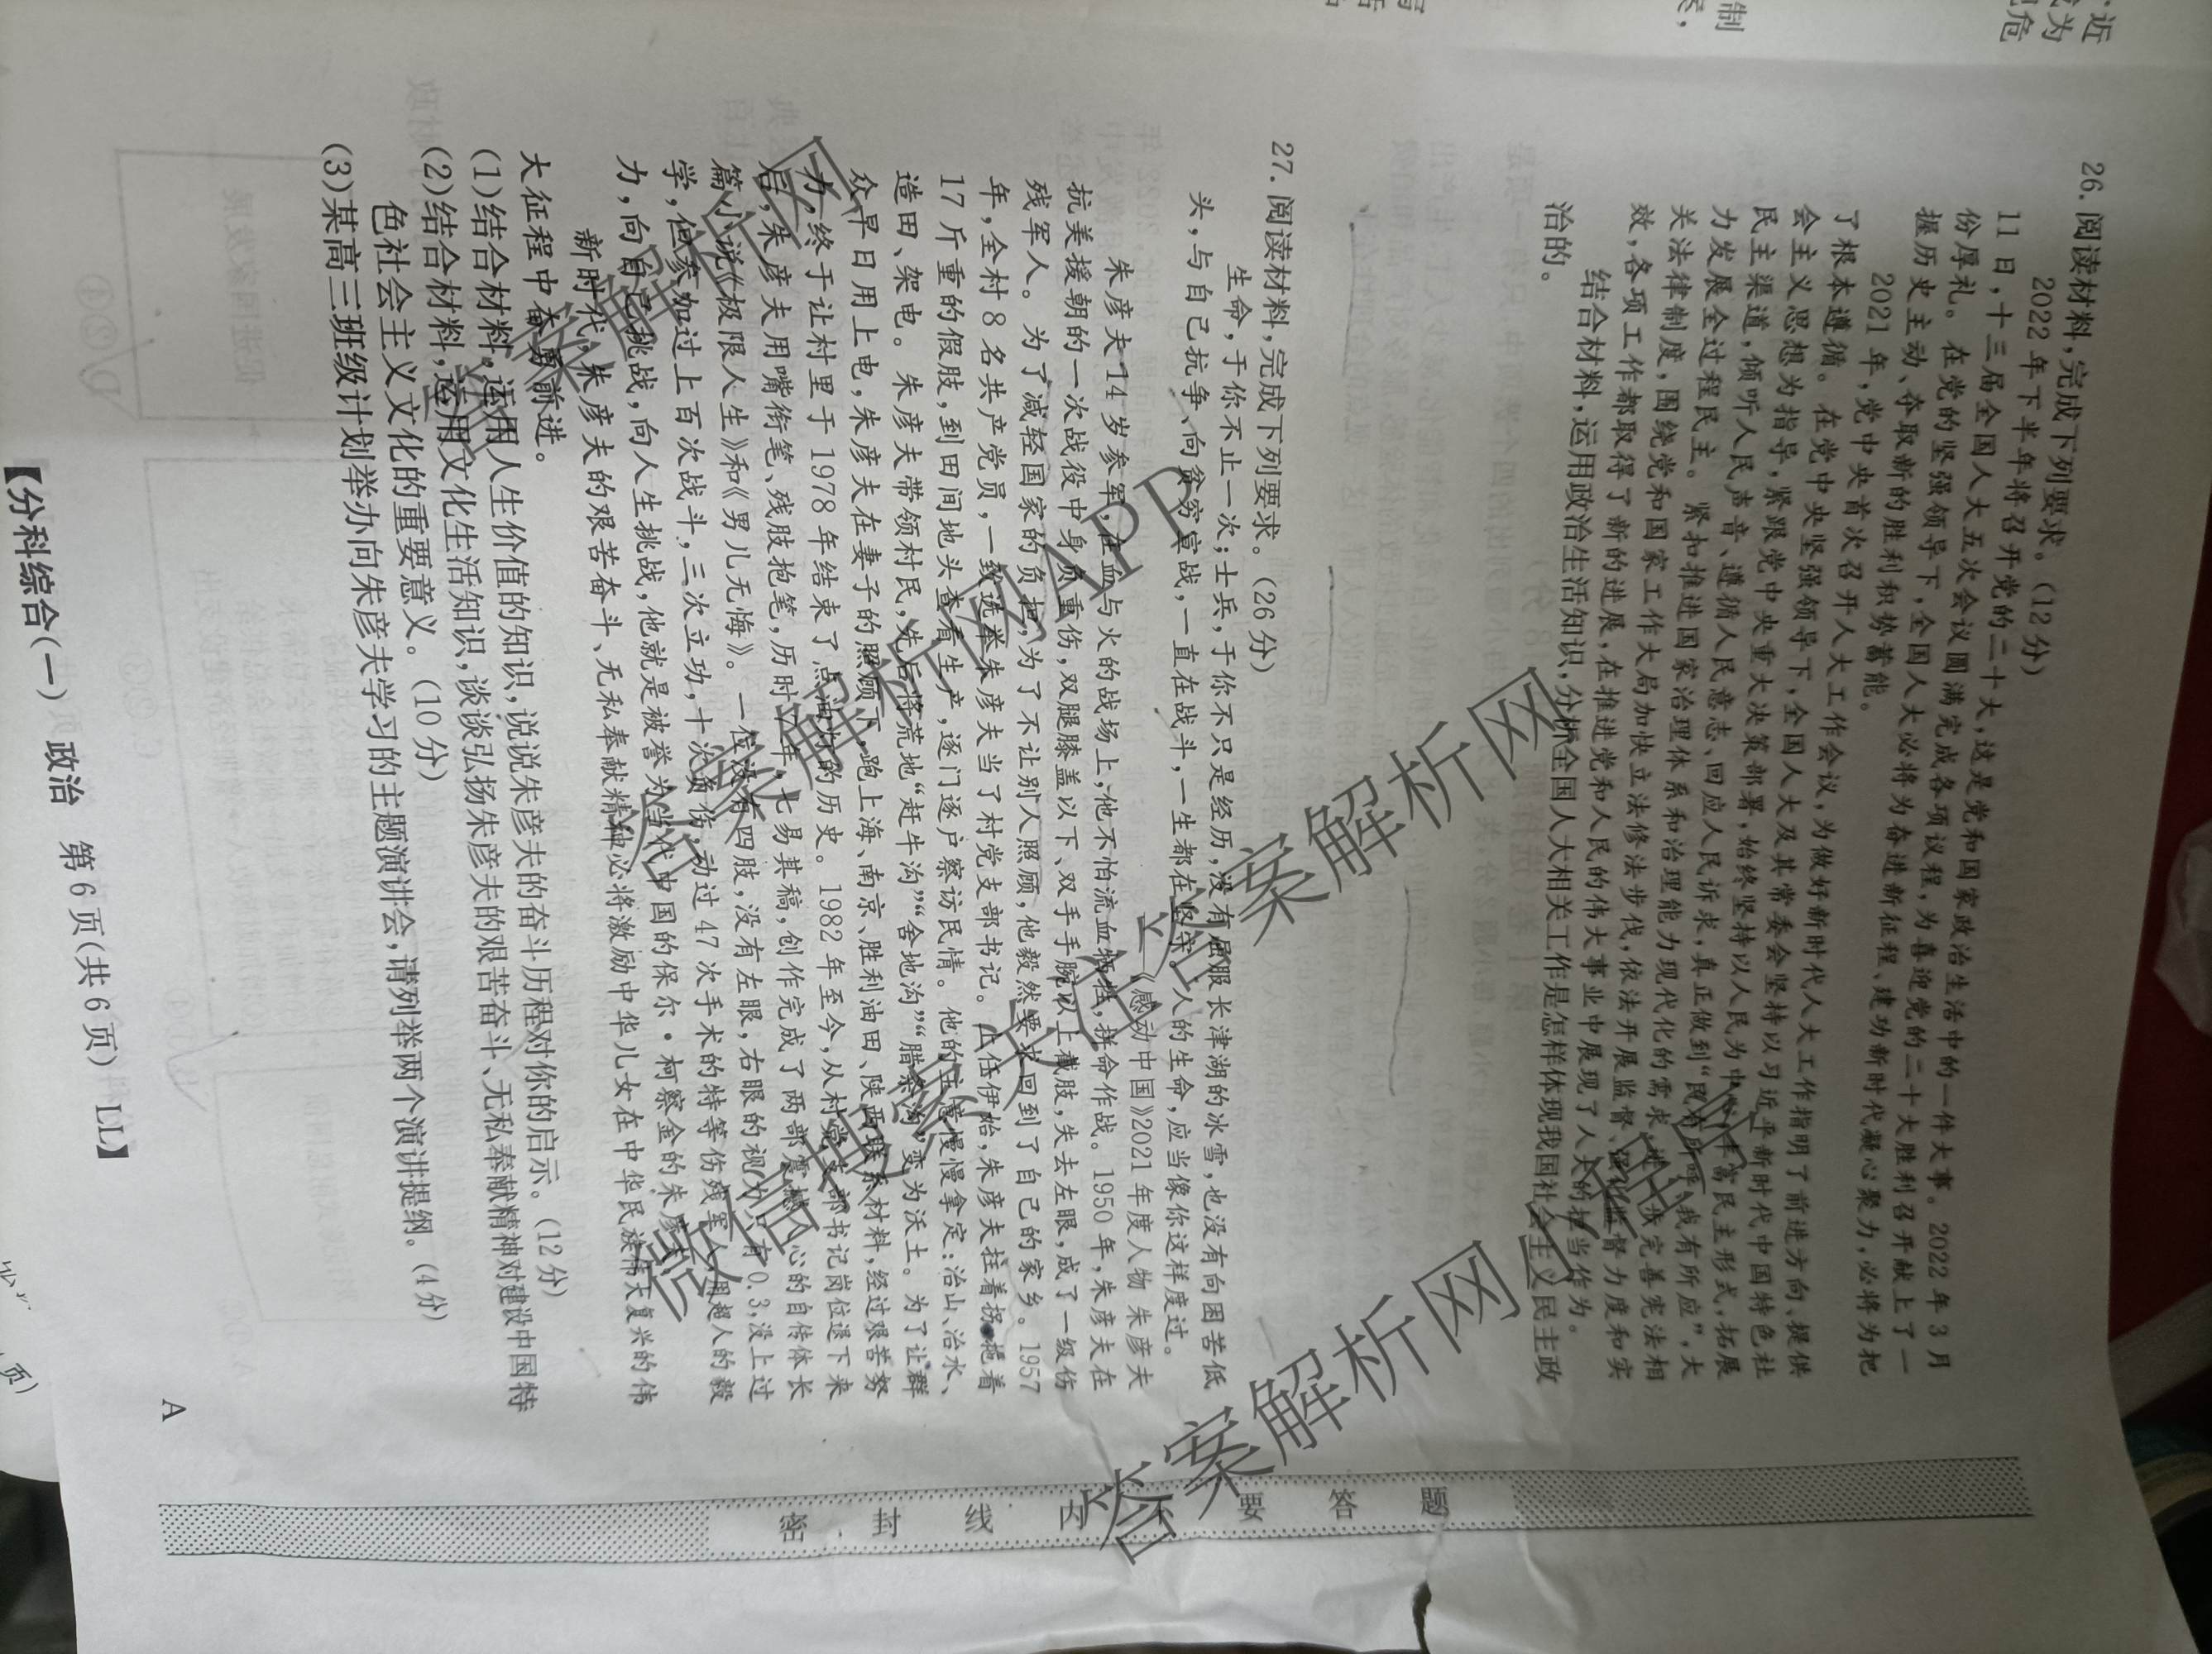 26. 阅读材料,完成下列要求。(12分)
2022年下半年将召开党的二十大,这是党和国家政治生活中的一件大事。2022年3月
11日,十三届全国人大五次会议圆满完成各项议程,为喜迎党的二十大胜利召开献上了一
份厚礼。在党的坚强领导下,全国人大必将为奋进新征程、建功新时代凝心聚力,必将为把
握历史主动、夺取新的胜利积势蓄能。
2021年,党中央首次召开人大工作会议,为做好新时代人大工作指明了前进方向、提供
了根本遵循。在党中央坚强领导下,全国人大及其常委会坚持以习近平新时代中国特色社
会主义思想为指导,紧跟党中央重大决策部署,始终坚持以人民为中心,丰富民主形式,拓展
民主渠道,倾听人民声音、遵循人民意志、回应人民诉求,真正做到“民有所呼、我有所应”,大
力发展全过程民主。紧扣推进国家治理体系和治理能力现代化的需求,进一步完善宪法相
关法律制度,围绕党和国家工作大局加快立法修法步伐,依法开展监督、强化监督力度和实
效,各项工作都取得了新的进展,在推进党和人民的伟大事业中展现了人大的担当作为。
结合材料,运用政治生活知识,分析全国人大相关工作是怎样体现我国社会主义民主政
治的。
27. 阅读材料,完成下列要求。(26分)
生命,于你不止一次;士兵,于你不只是经历,没有屈服长津湖的冰雪,也没有向困苦低
头,与自己抗争、向贫穷宣战,一直在战斗,一生都在坚守。人的生命,应当像你这样度过。
——《感动中国》2021年度人物 朱彦夫
朱彦夫14岁参军,在血与火的战场上,他不怕流血牺牲,拼命作战。1950年,朱彦夫在
抗美援朝的一次战役中身负重伤,双腿膝盖以下、双手手腕以上截肢,失去左眼,成了一级伤
残军人。为了减轻国家的负担,为了不让别人照顾,他毅然要求回到了自己的家乡。1957
年,全村8名共产党员,一致选举朱彦夫当了村党支部书记。上任伊始,朱彦夫拄着拐,拖着
17斤重的假肢,到田间地头查看生产,逐门逐户察访民情。他的主意慢慢拿定:治山、治水、
造田、架电。朱彦夫带领村民,先后将荒地“赶牛沟”“舍地沟”“腊条沟”变为沃土。为了让群
众早日用上电,朱彦夫在妻子的照顾下,跑上海、南京、胜利油田、陕西联系材料,经过艰苦努
力,终于让村里于1978年结束了点油灯的历史。1982年至今,从村党支部书记岗位退下来
后,朱彦夫用嘴衔笔、残肢抱笔,历时7年,七易其稿,创作完成了两部震撼人心的自传体长
篇小说《极限人生》和《男儿无悔》。一位没有四肢,没有左眼,右眼的视力只有0.3,没上过
学,但参加过上百次战斗,三次立功,十次负伤,动过47次手术的特等伤残军人,用超人的毅
力,向自己挑战,向人生挑战,他就是被誉为当代中国的保尔·柯察金的朱彦夫。
新时代,朱彦夫的艰苦奋斗、无私奉献精神必将激励中华儿女在中华民族伟大复兴的伟
大征程中奋勇前进。
(1)结合材料,运用人生价值的知识,说说朱彦夫的奋斗历程对你的启示。(12分)
(2)结合材料,运用文化生活知识,谈谈弘扬朱彦夫的艰苦奋斗、无私奉献精神对建设中国特
色社会主义文化的重要意义。(10分)
(3)某高三班级计划举办向朱彦夫学习的主题演讲会,请列举两个演讲提纲。(4分)
【分科综合(一) 政治 第6页(共6页) LL】
A
密 封 线 内 不 要 答 题
答案解析网
答案解析网